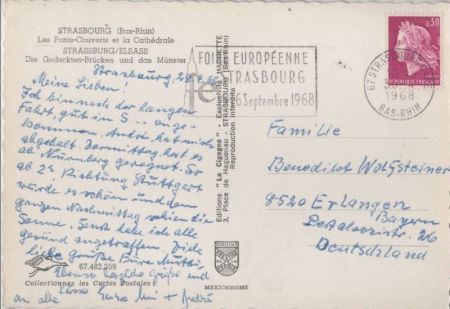 STRASBOURG (Bas-Rhin)
Les Ponts-Couverts et la Cathédrale
STRASSBURG/ELSASS
Die Gedeckten-Brücken und das Münster
Strasbourg, 68
Meine Lieben!
Ich bin nach der langen
Fahrt, gut in S... ange-
kommen. André hat mich
abgeholt. Vormittag hat es
ab Nürnberg geregnet. Erst
ab Richtung Stuttgart
wurde es schön und den
ganzen Nachmittag schien die
Sonne. Sonst habe ich alle
gesund angetroffen. Viele
liebe Grüße Eure Mutti,
Ebenso Grüße und
an alle + André
67.482.359
Collectionnez les Cartes Postales !
Editions "La Cigogne" - Exclusivité HACHETTE
3, Place de Haguenau - STRASBOURG (Bas-Rhin)
Reproduction interdite
MEXICHROME
FOIRE EUROPÉENNE
STRASBOURG
16 Septembre 1968
67 STRASBOURG
1968
BAS-RHIN
0,30
REPUBLIQUE FRANÇAISE
Familie
Benedikt Wolfsteiner
8520 Erlangen
Bayern
Pestalozzistr. 26
Deutschland